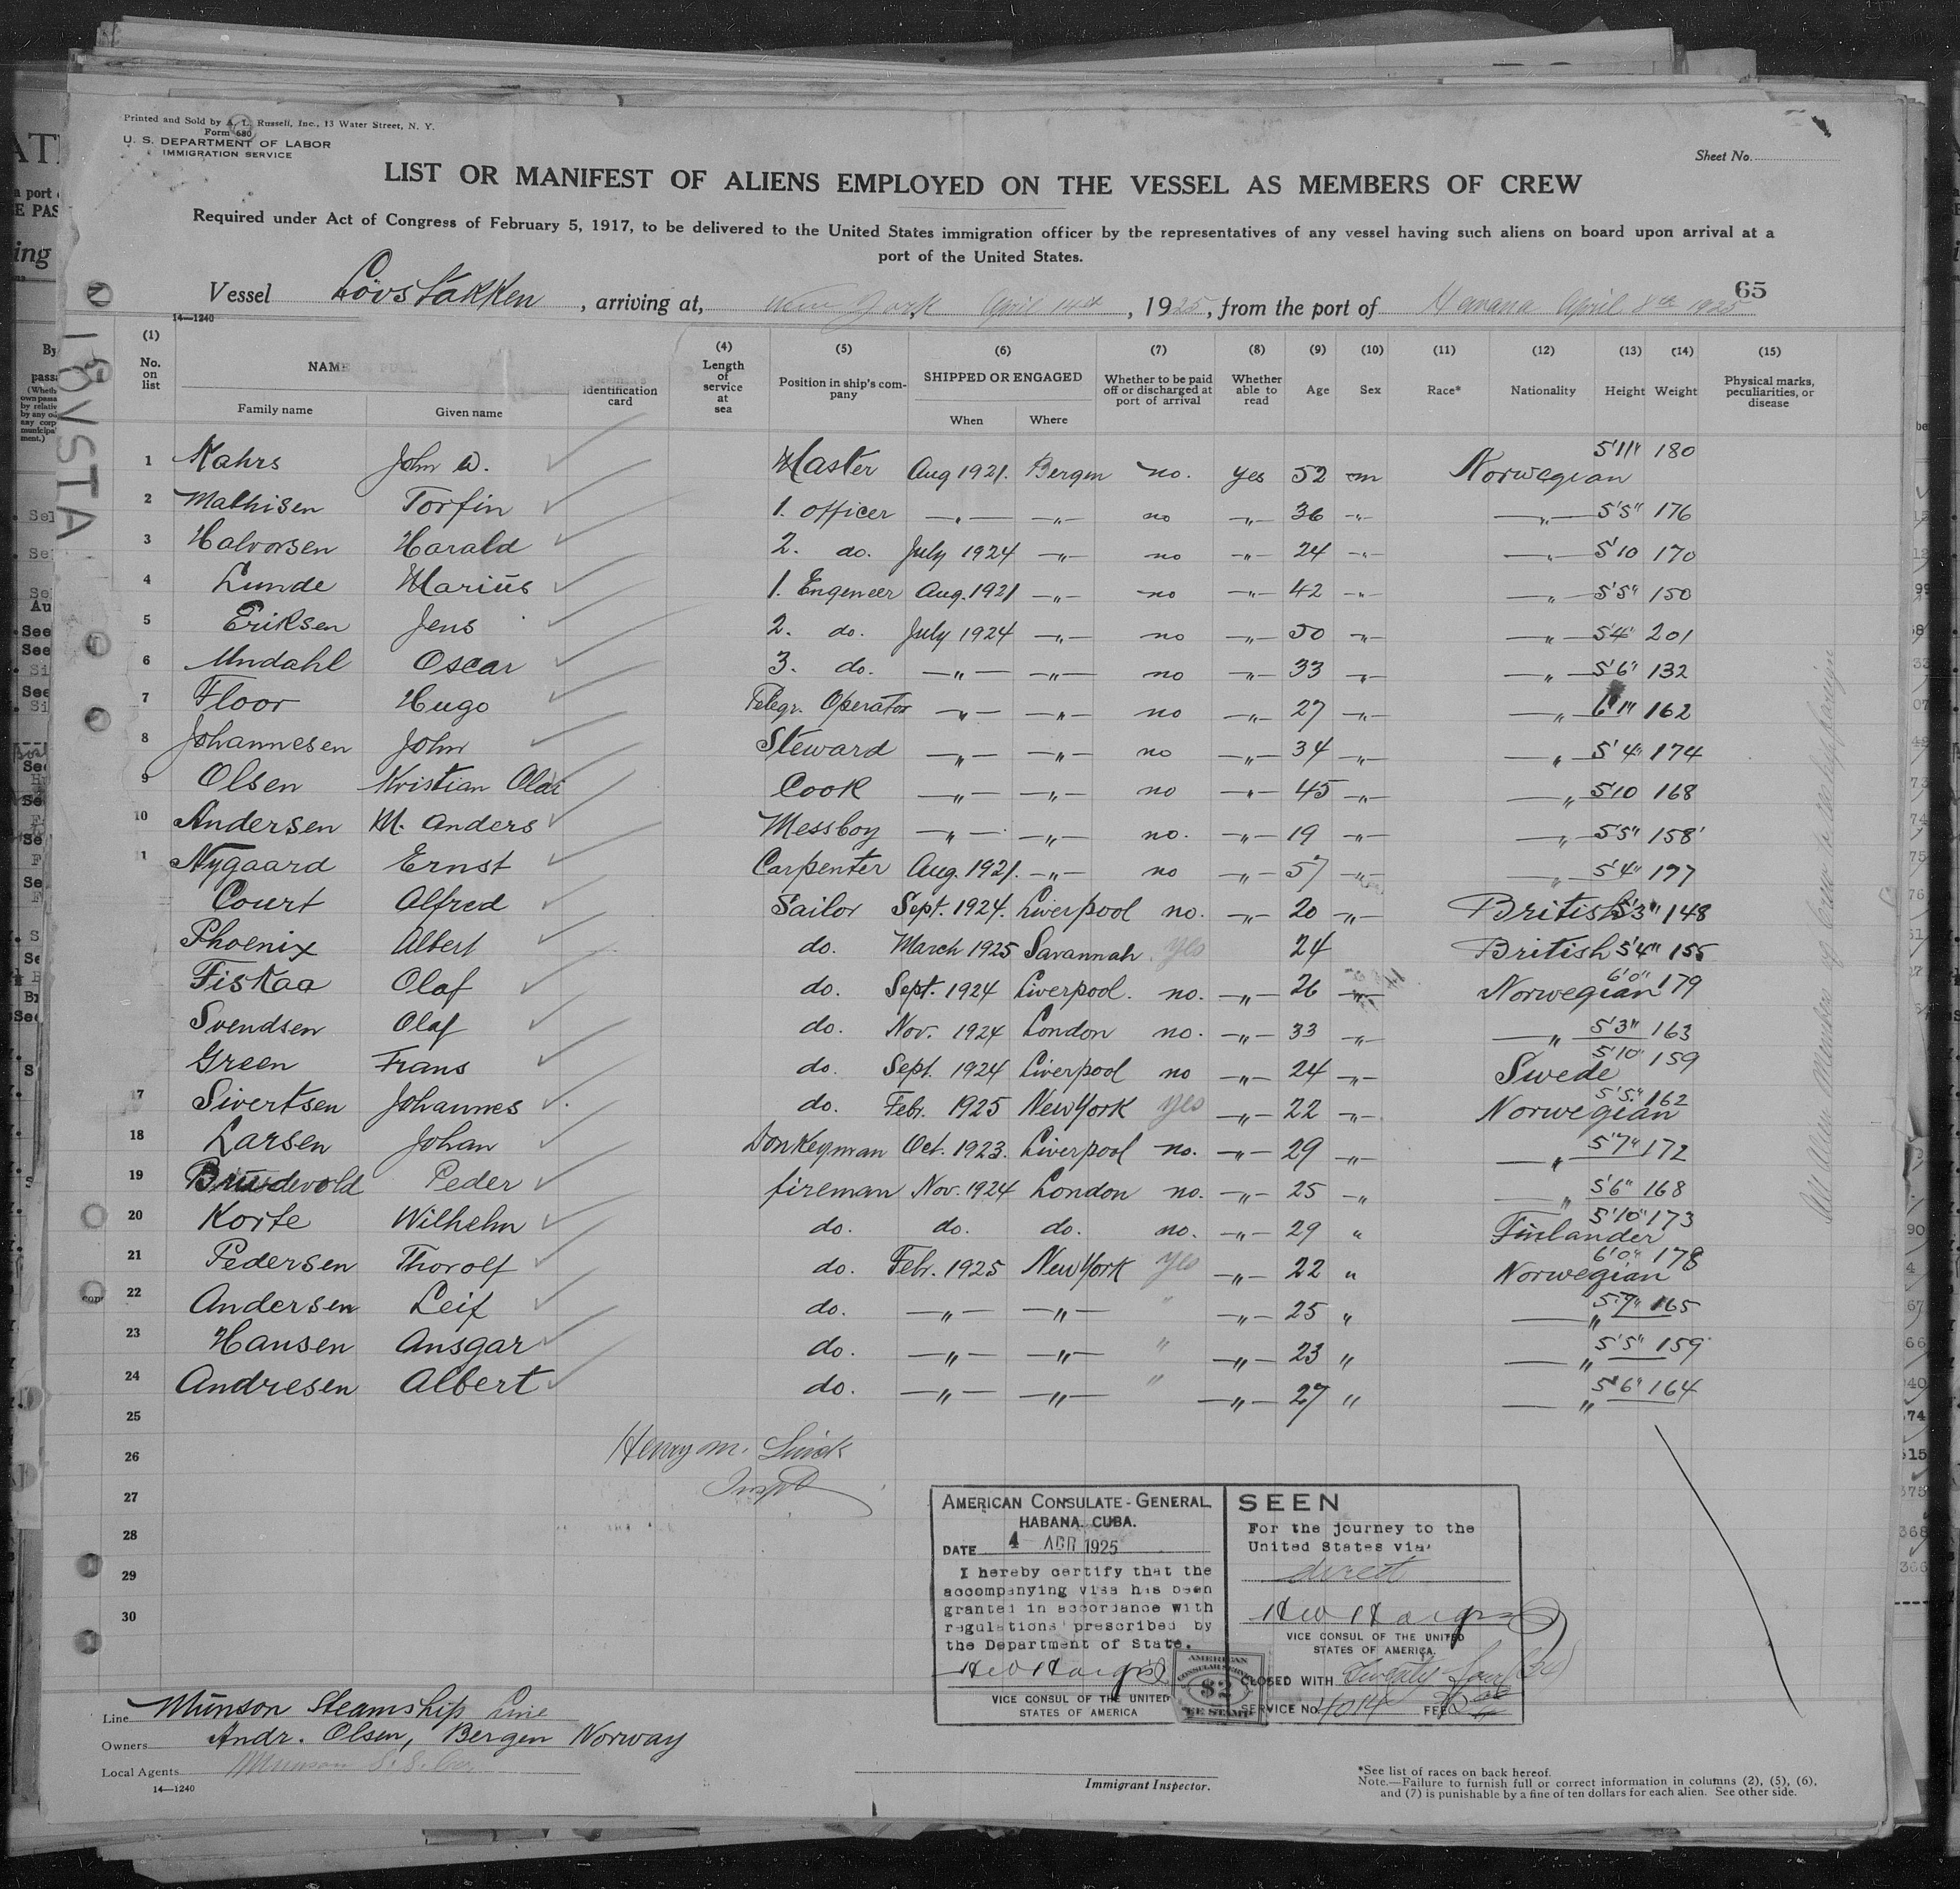 Printed and Sold by A. L. Russell, Inc., 13 Water Street, N. Y.
Form 680
U. S. DEPARTMENT OF LABOR
IMMIGRATION SERVICE
Sheet No.
LIST OR MANIFEST OF ALIENS EMPLOYED ON THE VESSEL AS MEMBERS OF CREW
Required under Act of Congress of February 5, 1917, to be delivered to the United States immigration officer by the representatives of any vessel having such aliens on board upon arrival at a
port of the United States.
65
Vessel Lövstakken, arriving at, New York April 14th, 1925, from the port of Havana April 8th 1925
14—1240
LOVSTA
(1) (4) (5) (6) (7) (8) (9) (10) (11) (12) (13) (14) (15)
No. on list NAME IN FULL Family name Given name identification card Length of service at sea Position in ship's company SHIPPED OR ENGAGED When Where Whether to be paid off or discharged at port of arrival Whether able to read Age Sex Race* Nationality Height Weight Physical marks, peculiarities, or disease
1 Kahrs John W. Master Aug 1921. Bergen no. yes 52 m Norwegian 5'11" 180
2 Mathisen Torfin 1. officer —„— —„— no —„— 36 —„— —„— 5'5" 176
3 Halvorsen Harald 2. do. July 1924 —„— no —„— 24 —„— —„— 5'10 170
4 Lunde Marius 1. Engeneer Aug. 1921 —„— no —„— 42 —„— —„— 5'5" 150
5 Eriksen Jens 2. do. July 1924 —„— no —„— 50 —„— —„— 5'4" 201
6 Undahl Oscar 3. do. —„— —„— no —„— 33 —„— —„— 5'6" 132
7 Floor Hugo Telegr. Operator —„— —„— no —„— 27 —„— —„— 6'1" 162
8 Johannesen John Steward —„— —„— no —„— 34 —„— —„— 5'4" 174
9 Olsen Kristian Olai Cook —„— —„— no —„— 45 —„— —„— 5'10 168
10 Andersen M. Anders Messboy —„— —„— no. —„— 19 —„— —„— 5'5" 158
11 Nygaard Ernst Carpenter Aug. 1921. —„— no —„— 57 —„— —„— 5'4" 177
Court Alfred Sailor Sept. 1924. Liverpool no. —„— 20 —„— British 5'3" 148
Phoenix Albert do. March 1925 Savannah yes 24 British 5'4" 155
Fiskaa Olaf do. Sept. 1924 Liverpool. no. —„— 26 —„— Norwegian 6'0" 179
Svendsen Olaf do. Nov. 1924 London no. —„— 33 —„— —„— 5'3" 163
Green Frans do. Sept. 1924 Liverpool no —„— 24 —„— Swede 5'10" 159
17 Sivertsen Johannes do. Febr. 1925 New York yes —„— 22 —„— Norwegian 5'5" 162
18 Larsen Johan Donkeyman Oct. 1923. Liverpool no. —„— 29 —„— —„— 5'7" 172
19 Peder fireman Nov. 1924 London no. —„— 25 —„ —„ 5'6" 168
20 Korte Wilhelm do. do. do. no. —„— 29 „ Finlander 5'10" 173
21 Pedersen Thorolf do. Febr. 1925 New York yes —„— 22 „ Norwegian 6'0" 178
22 Andersen Leif do. —„— —„— " —„— 25 „ —„— 5'7" 165
23 Hansen Ansgar do. —„— —„— " —„— 23 „ —„— 5'5" 159
24 Andresen Albert do. —„— —„— " —„— 27 „ —„— 5'6" 164
25
26 Henry M.
27 Insp
28
29
30
AMERICAN CONSULATE-GENERAL
HABANA. CUBA.
DATE 4 ABR 1925
I hereby certify that the
accompanying visa has been
granted in accordance with
regulations prescribed by
the Department of State.
VICE CONSUL OF THE UNITED
STATES OF AMERICA
AMERICAN
CONSULAR SERVICE
$2
FEE STAMP
SEEN
For the journey to the
United States via
direct
VICE CONSUL OF THE UNITED
STATES OF AMERICA.
CLOSED WITH Twenty four (24)
SERVICE No. 4014 FEE
Line Munson Steamship Line
Owners Andr. Olsen, Bergen Norway
Local Agents Munson S. S. Co.
14—1240
Immigrant Inspector.
*See list of races on back hereof.
Note.—Failure to furnish full or correct information in columns (2), (5), (6),
and (7) is punishable by a fine of ten dollars for each alien. See other side.